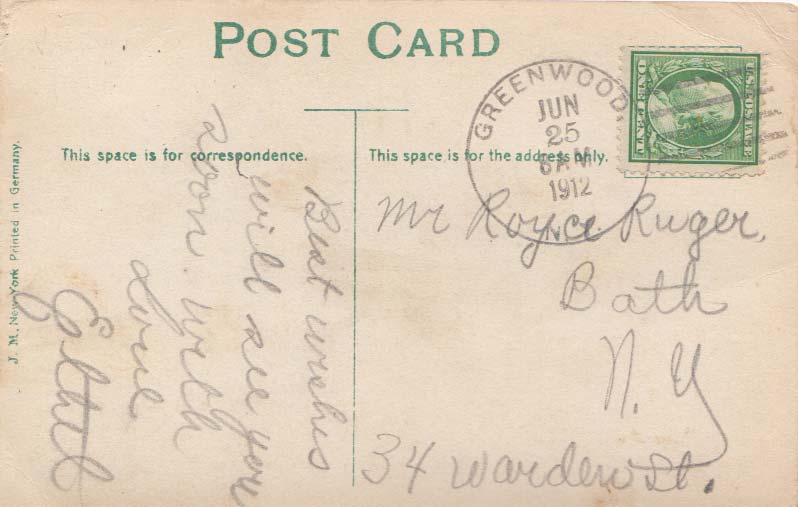 POST CARD
This space is for correspondence.
This space is for the address only.
GREENWOOD,
JUN
25
6 AM
1912
N.Y.
U.S.POSTAGE
ONE CENT
J. M. New-York Printed in Germany.
Best wishes
will see you
soon. with
love
Ethel
Mr Royce Ruger,
Bath
N. Y
34 Warden St.